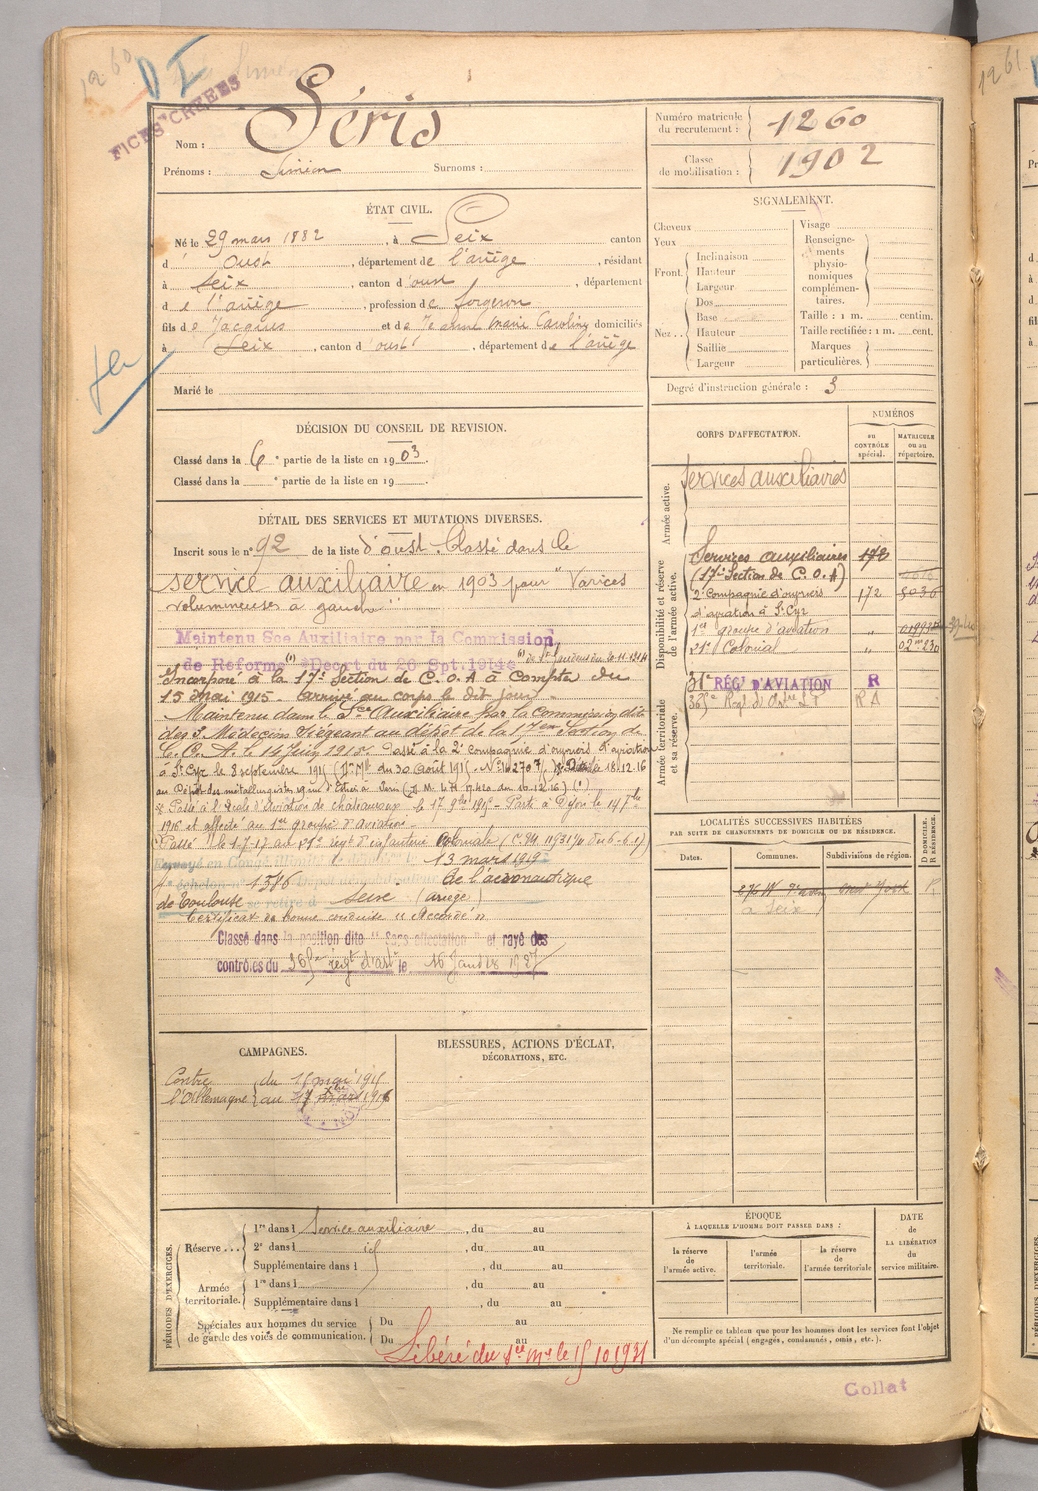 1260
D I
FICES CREEES
Nom : Séris
Prénoms : Simien Surnoms :
Numéro matricule du recrutement : 1260
Classe de mobilisation : 1902
ÉTAT CIVIL.
Né le 29 mars 1882, à Seix canton
d'Oust, département de l'ariège, résidant
à Seix, canton d'oust, département
de l'ariège, profession de forgeron
fils de Jacques et de Jeanne marie Caroline domiciliés
à Seix, canton d'oust, département de l'ariège
Marié le
SIGNALEMENT.
Cheveux
Yeux
Front. Inclinaison
Hauteur
Largeur
Nez.. Dos
Base
Hauteur
Saillie
Largeur
Visage
Renseignements physionomiques complémentaires.
Taille : 1 m. centim.
Taille rectifiée : 1 m. cent.
Marques particulières.
Degré d'instruction générale : 3
DÉCISION DU CONSEIL DE REVISION.
Classé dans la 6e partie de la liste en 1903.
Classé dans la e partie de la liste en 19 .
DÉTAIL DES SERVICES ET MUTATIONS DIVERSES.
Inscrit sous le n° 92 de la liste d'oust. Classé dans le
service auxiliaire en 1903 pour "Varices
volumineuses à gauche"
Maintenu Sce Auxiliaire par la Commission
de Réforme (1) Décret du 26 Sept. 1914
Incorporé à la 17e Section de C.O.A à compter du
15 mai 1915. Arrivé au corps le dit jour.
Maintenu dans le Sce Auxiliaire par la Commission dite
des 3 Médecins siégeant au dépôt de la 17e Section de
C.O.A. le 14 Juin 1915. Passé à la 2e compagnie d'ouvriers d'aviation
à St Cyr le 8 septembre 1915 du 30 Août 1915
Passé à l'école d'Aviation de châteauroux le 17
1916 et affecté au 1er groupe d'aviation
Passé le 1-7-17 au régt d'infanterie Coloniale
Envoyé en Congé illimité 13 mars 1919
échelon n° 1376 Dépôt de l'aéronautique
de Toulouse se retire à Seix (ariège)
Certificat de bonne conduite "Accordé"
Classé dans la position dite "Sans affectation" et rayé des
contrôles du régt d'astie le 16 Janvier 1927
CORPS D'AFFECTATION.
NUMÉROS
au CONTRÔLE spécial.
MATRICULE ou au répertoire.
Armée active.
Services auxiliaires
Disponibilité et réserve de l'armée active.
Services auxiliaires 172
(17e Section de C.O.A)
2e Compagnie d'ouvriers 172
d'aviation à St Cyr
1er groupe d'aviation
Colonial
Armée territoriale et sa réserve.
31e RÉGt D'AVIATION R
R A
LOCALITÉS SUCCESSIVES HABITÉES
PAR SUITE DE CHANGEMENTS DE DOMICILE OU DE RÉSIDENCE.
Dates.
Communes.
Subdivisions de région.
D DOMICILE. R RÉSIDENCE.
New York R
à Seix
CAMPAGNES.
Contre l'Allemagne du 15 mai 1915
au
BLESSURES, ACTIONS D'ÉCLAT,
DÉCORATIONS, ETC.
PÉRIODES D'EXERCICES.
Réserve... 1re dans l Service auxiliaire, du au
2e dans l id, du au
Supplémentaire dans l, du au
Armée territoriale. 1re dans l, du au
Supplémentaire dans l, du au
Spéciales aux hommes du service de garde des voies de communication. Du au
Du au
Libéré du Sce Mre le 15 10 1931
ÉPOQUE
À LAQUELLE L'HOMME DOIT PASSER DANS :
la réserve de l'armée active.
l'armée territoriale.
la réserve de l'armée territoriale
DATE de LA LIBÉRATION du service militaire.
Ne remplir ce tableau que pour les hommes dont les services font l'objet
d'un décompte spécial (engagés, condamnés, omis, etc.).
Collat
1261